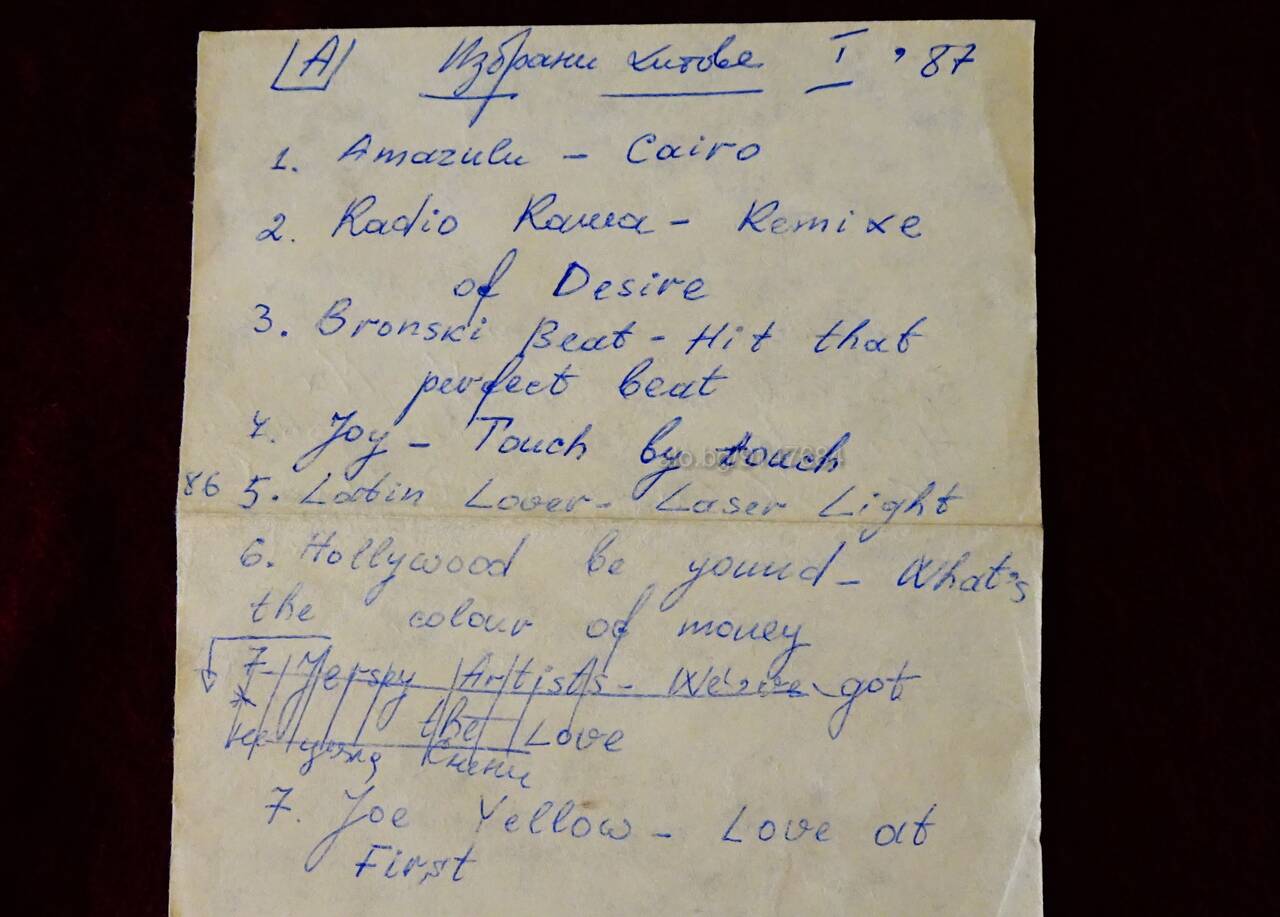 A Избрани хитове I '87
1. Amazulu - Cairo
2. Radio Rama - Remixe
of Desire
3. Bronski Beat - Hit that
perfect beat
4. Joy - Touch by touch
86 5. Latin Lover - Laser Light
6. Hollywood be yound - What's
the colour of money
7. Jerspy Artists - We've got
the Love
7. Joe Yellow - Love at
First